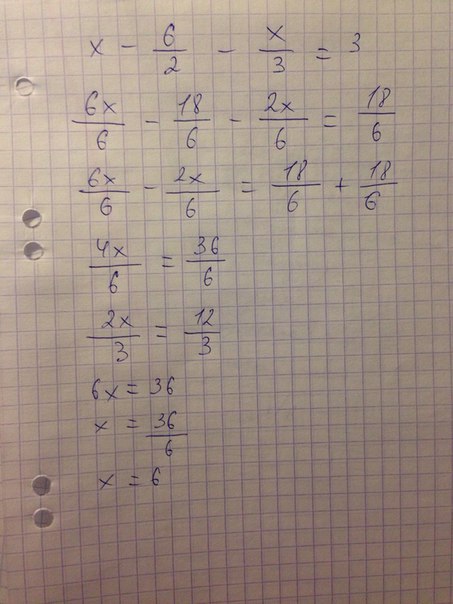 x - 6/2 - x/3 = 3
6x/6 - 18/6 - 2x/6 = 18/6
6x/6 - 2x/6 = 18/6 + 18/6
4x/6 = 36/6
2x/3 = 12/3
6x = 36
x = 36/6
x = 6